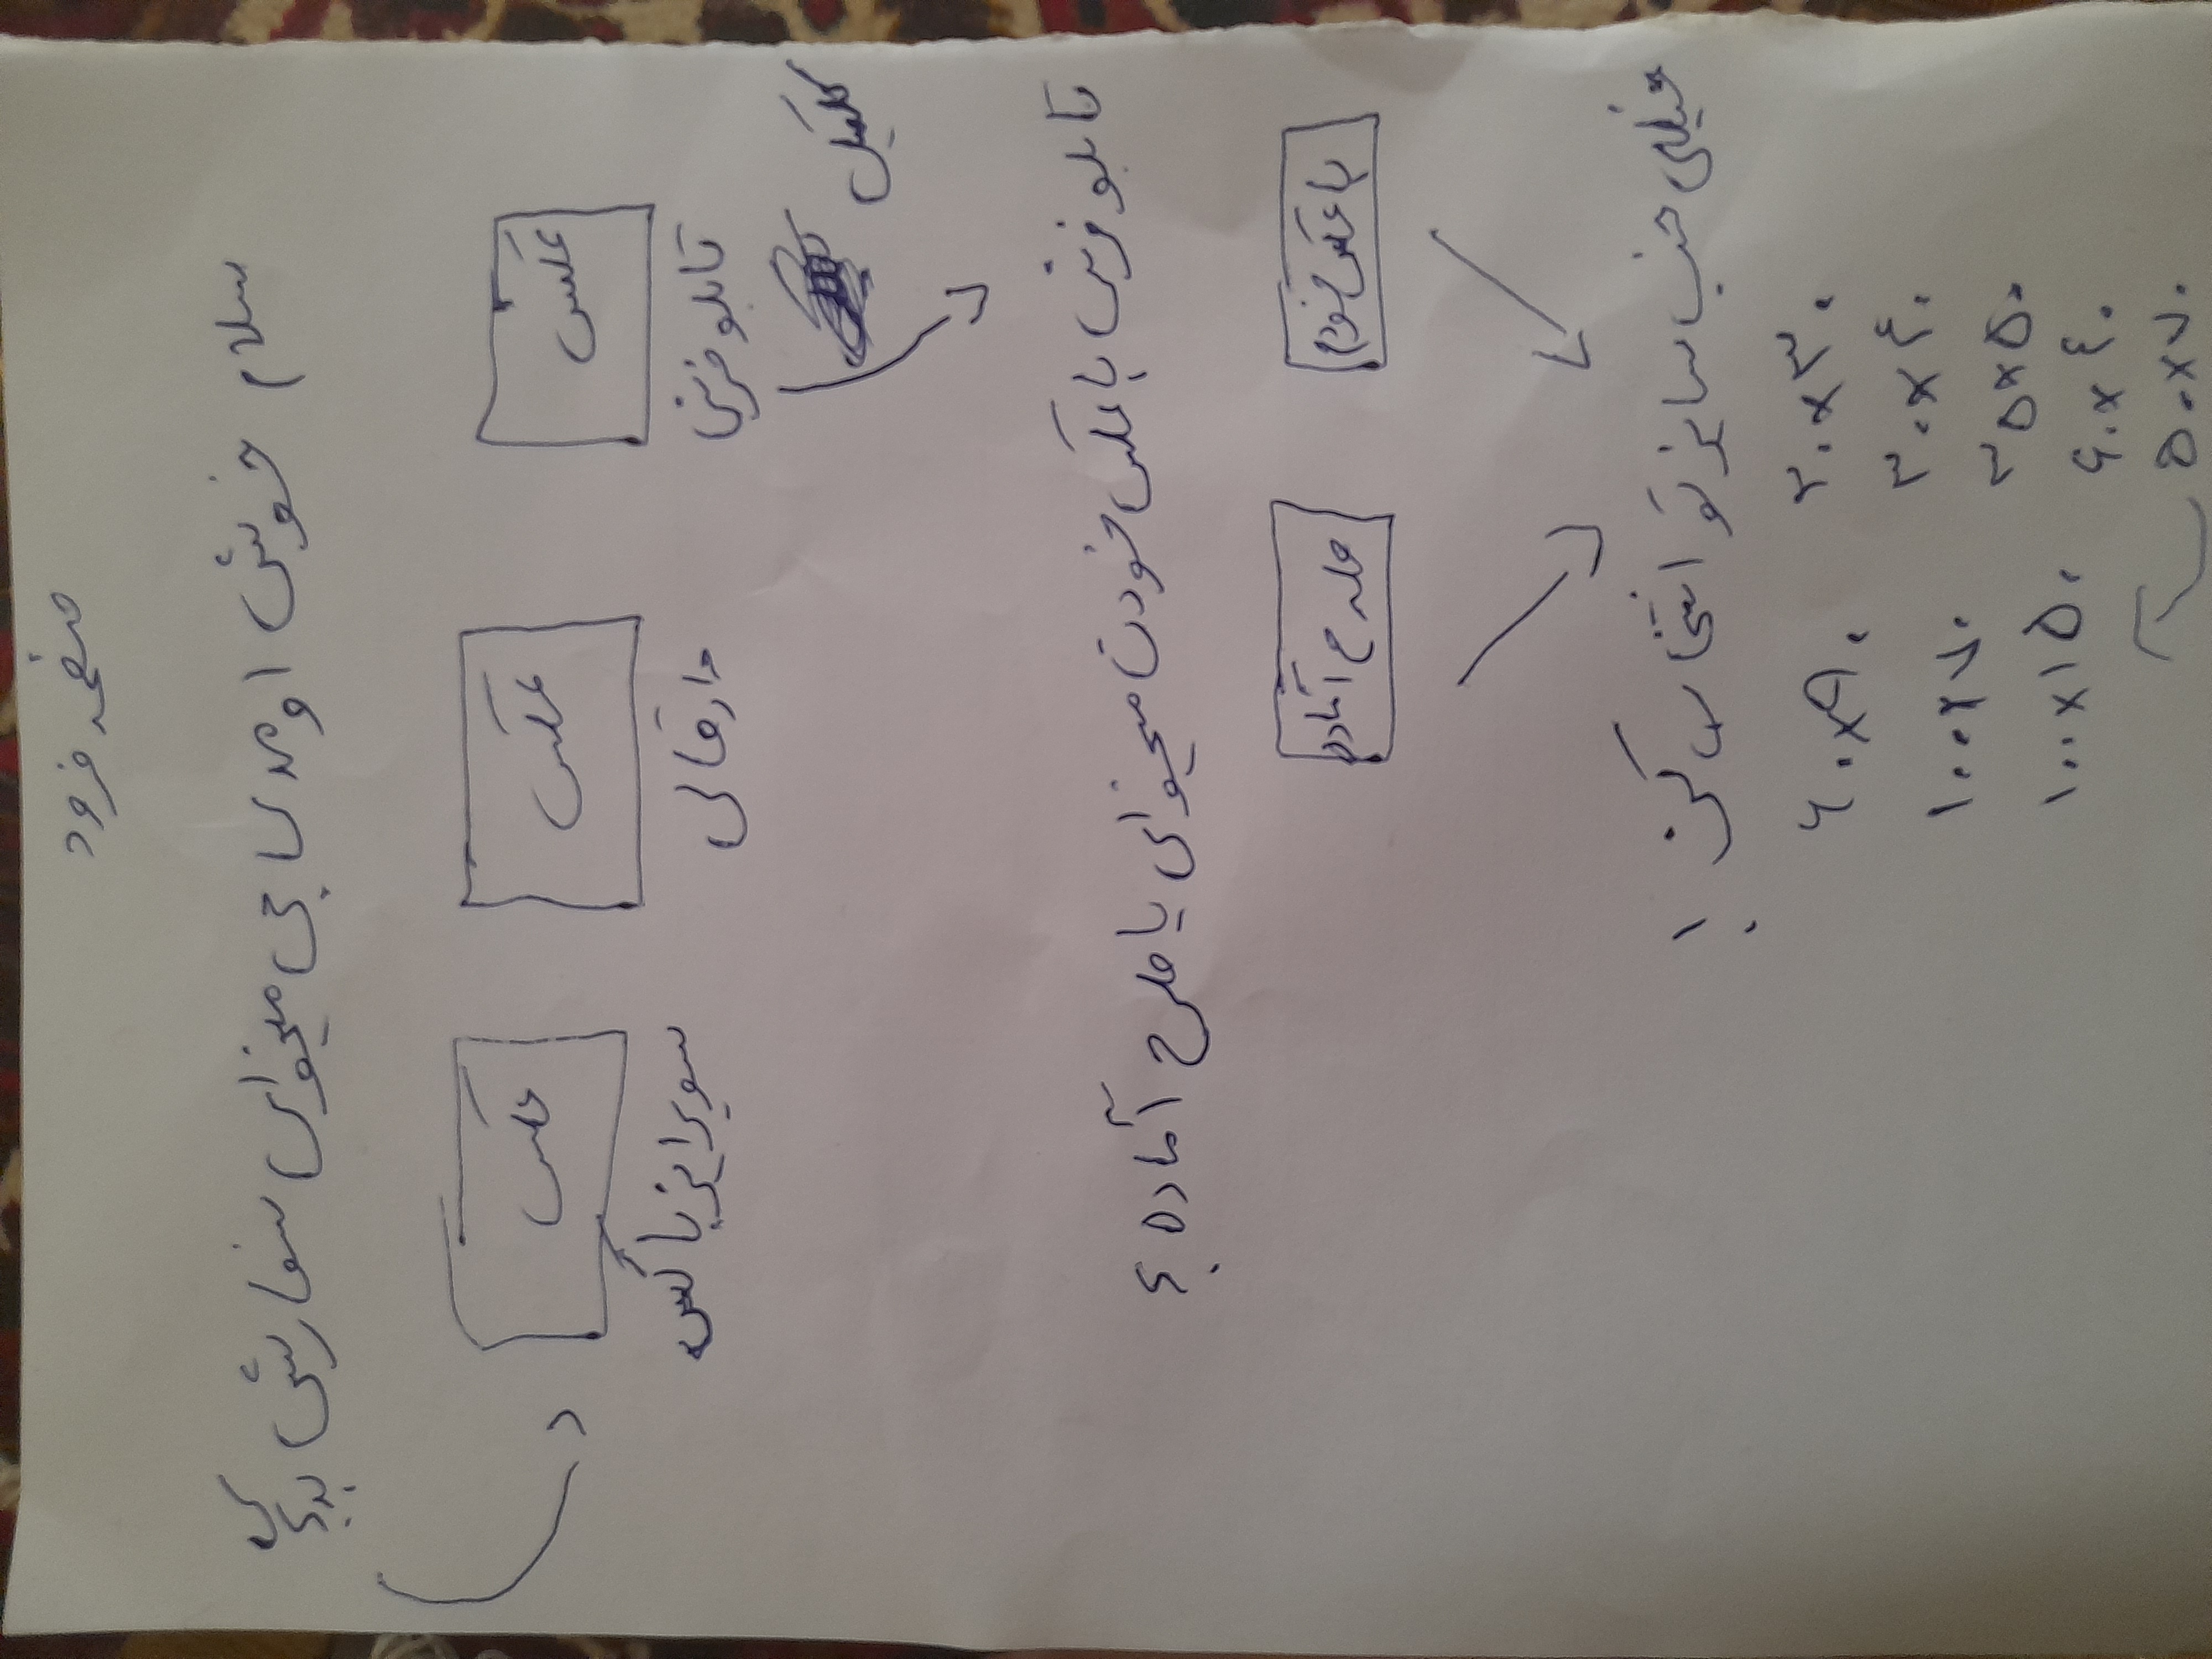 صفحه فرود
سلام خوش اومدی چی میخوای سفارش بدی؟
عکس عکس عکس
تابلو فرش دار قالی سوپرایز باکس
کلیک
تابلو فرش با عکس خودت میخوای یا طرح آماده؟
با عکس خودم طرح آماده
خیلی خب سایز تو انتخاب کن!
۲۰×۳۰
۳۰×۴۰
۳۵×۵۰
۶۰×۴۰
۵۰×۷۰
۶۰×۹۰
۱۰۰×۷۰
۱۰۰×۱۵۰